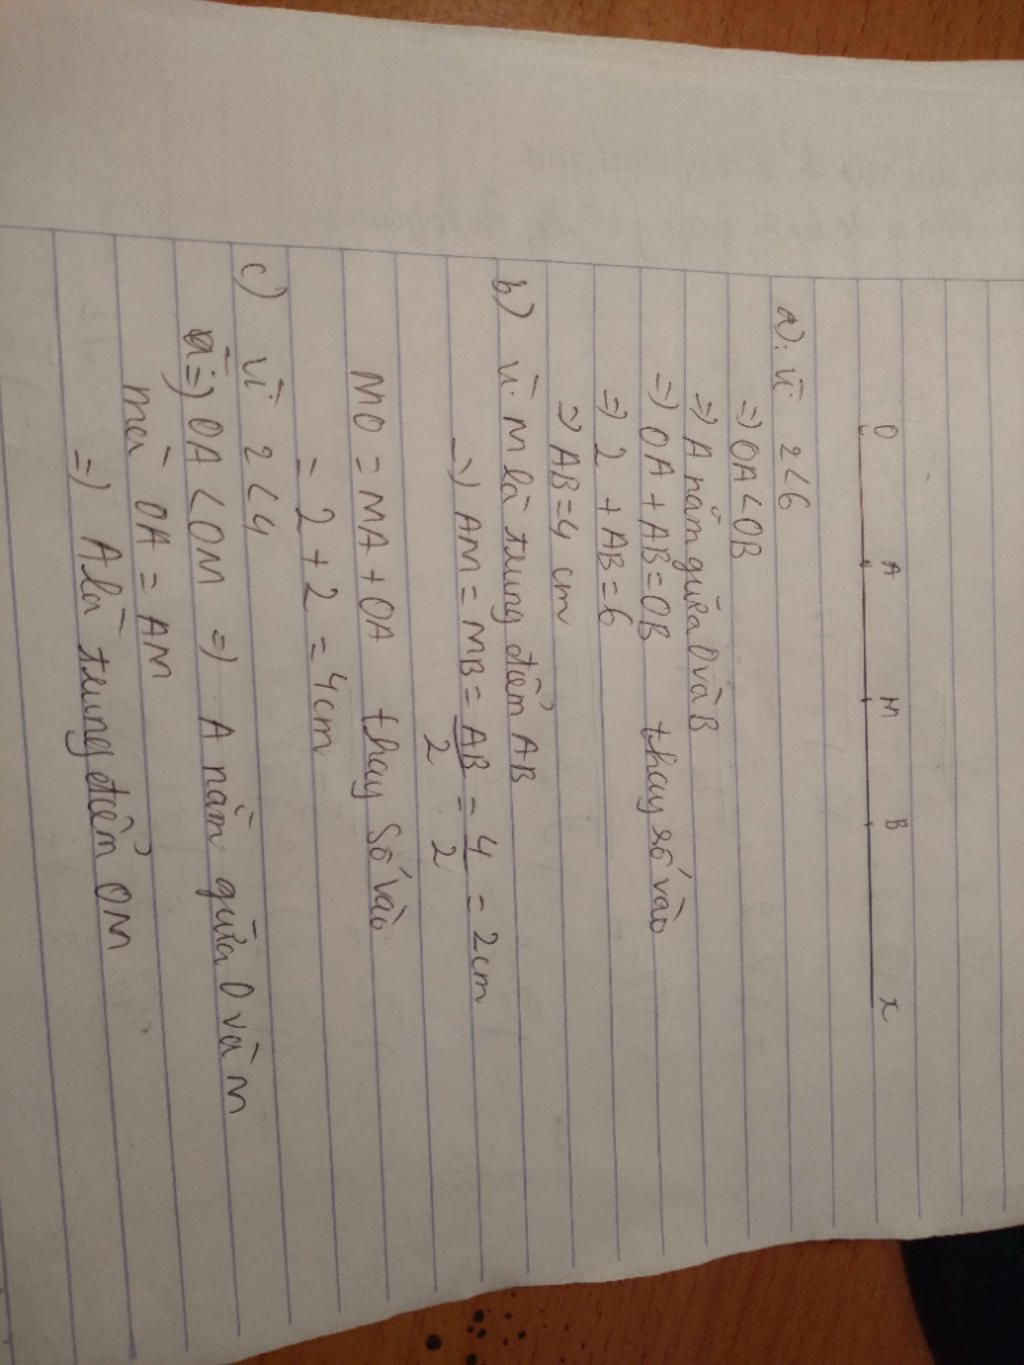 O A M B x
a) vì 2 < 6
=) OA < OB
=) A nằm giữa O và B
=) OA + AB = OB thay số vào
=) 2 + AB = 6
=) AB = 4 cm
b) vì M là trung điểm AB
=) AM = MB = AB/2 = 4/2 = 2cm
MO = MA + OA thay số vào
= 2 + 2 = 4cm
c) vì 2 < 4
=) OA < OM =) A nằm giữa O và M
mà OA = AM
=) A là trung điểm OM